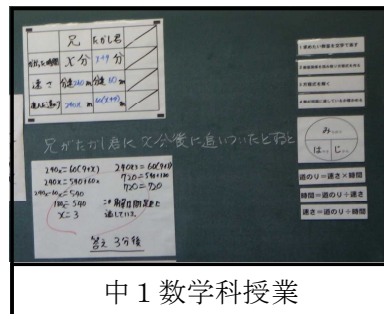 兄 たかし君
かかった時間 x分 x+9分
速さ 分速240m 分速60m
進んだ道のり 240x m 60(x+9)m
兄がたかし君にx分後に追いついたとすると
240x=60(9+x)
240x=540+60x
240x-60x=540
180x=540
x=3
240×3=60(9+3)
720=540+180
720=720
この解は問題に
適している。
答え 3分後
1 求めたい数量を文字で表す
3 方程式を解く
み
は じ
道のり=速さ×時間
時間=道のり÷速さ
速さ=道のり÷時間
中1数学科授業